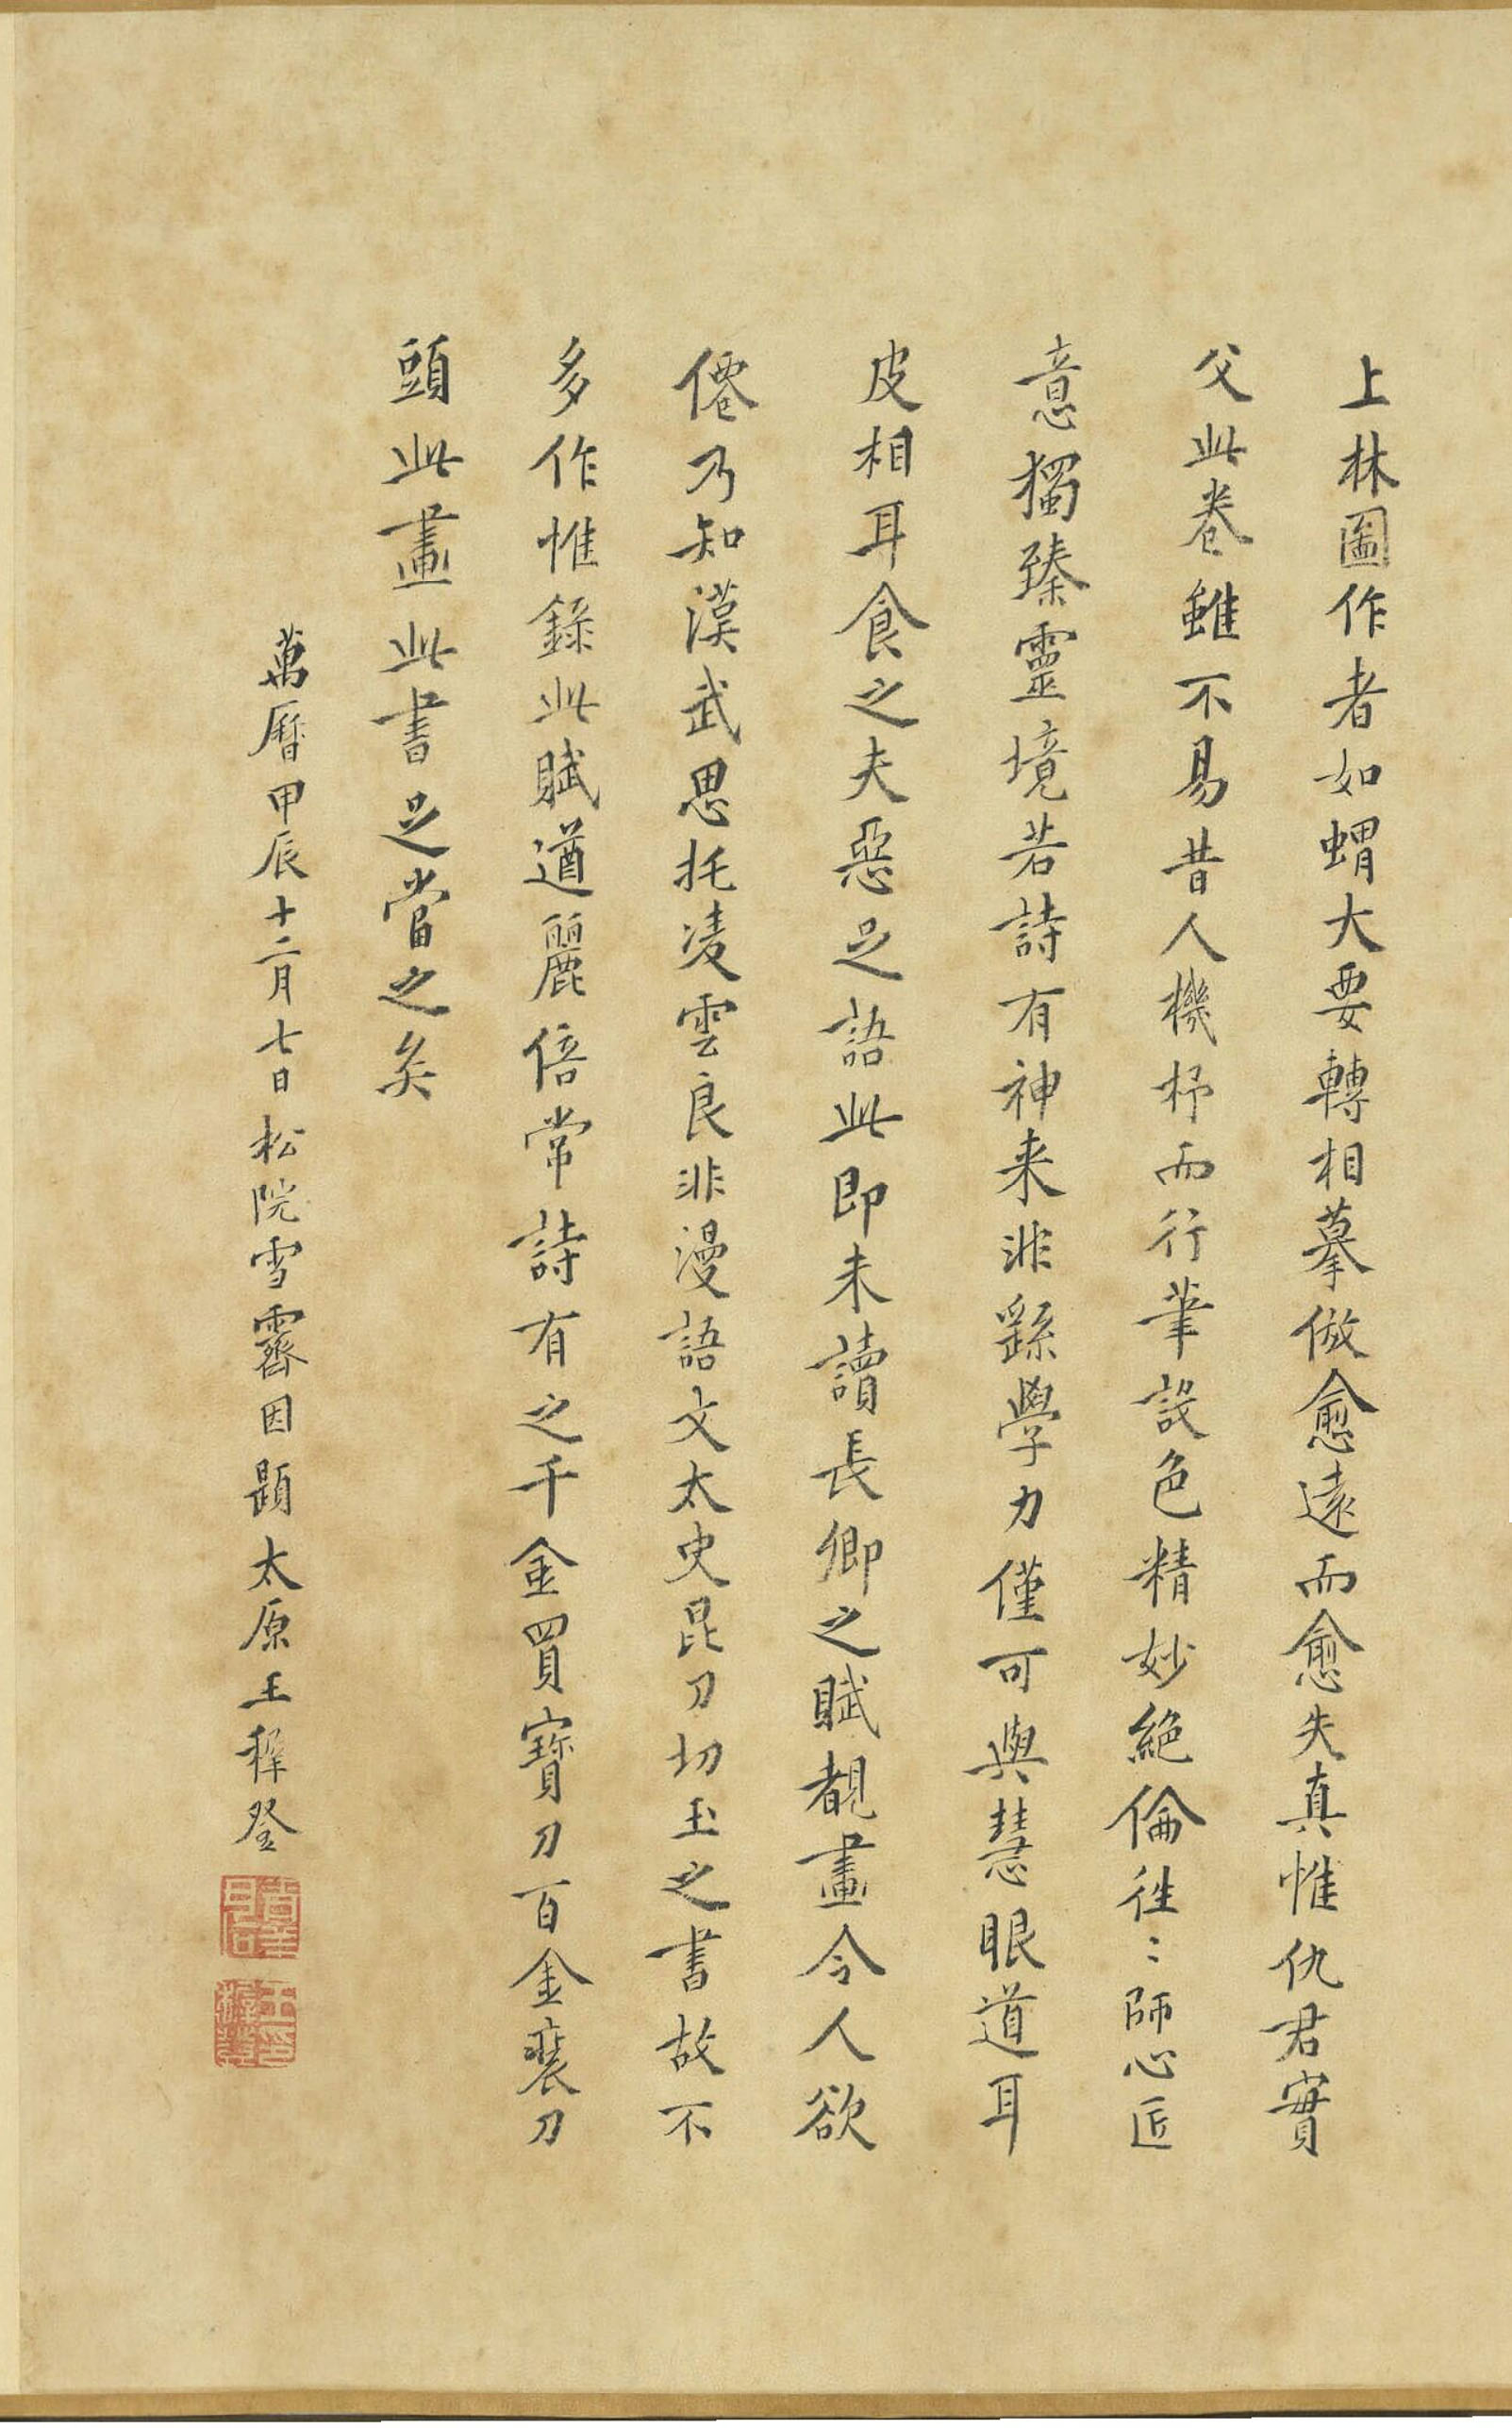 上林圖作者如蝟大要轉相摹倣愈遠而愈失真惟仇君實
父此卷雖不易昔人機杼而行筆設色精妙絕倫徃〻師心匠
意獨臻靈境若詩有神来非繇學力僅可與慧眼道耳
皮相耳食之夫惡足語此即未讀長卿之賦覩畫令人欲
僊乃知漢武思托凌雲良非漫語文太史昆刀切玉之書故不
多作惟錄此賦遒麗倍常詩有之千金買寶刀百金裝刀
頭此畫此書足當之矣
萬曆甲辰十二月七日松院雪霽因題太原王穉登
王穉登印